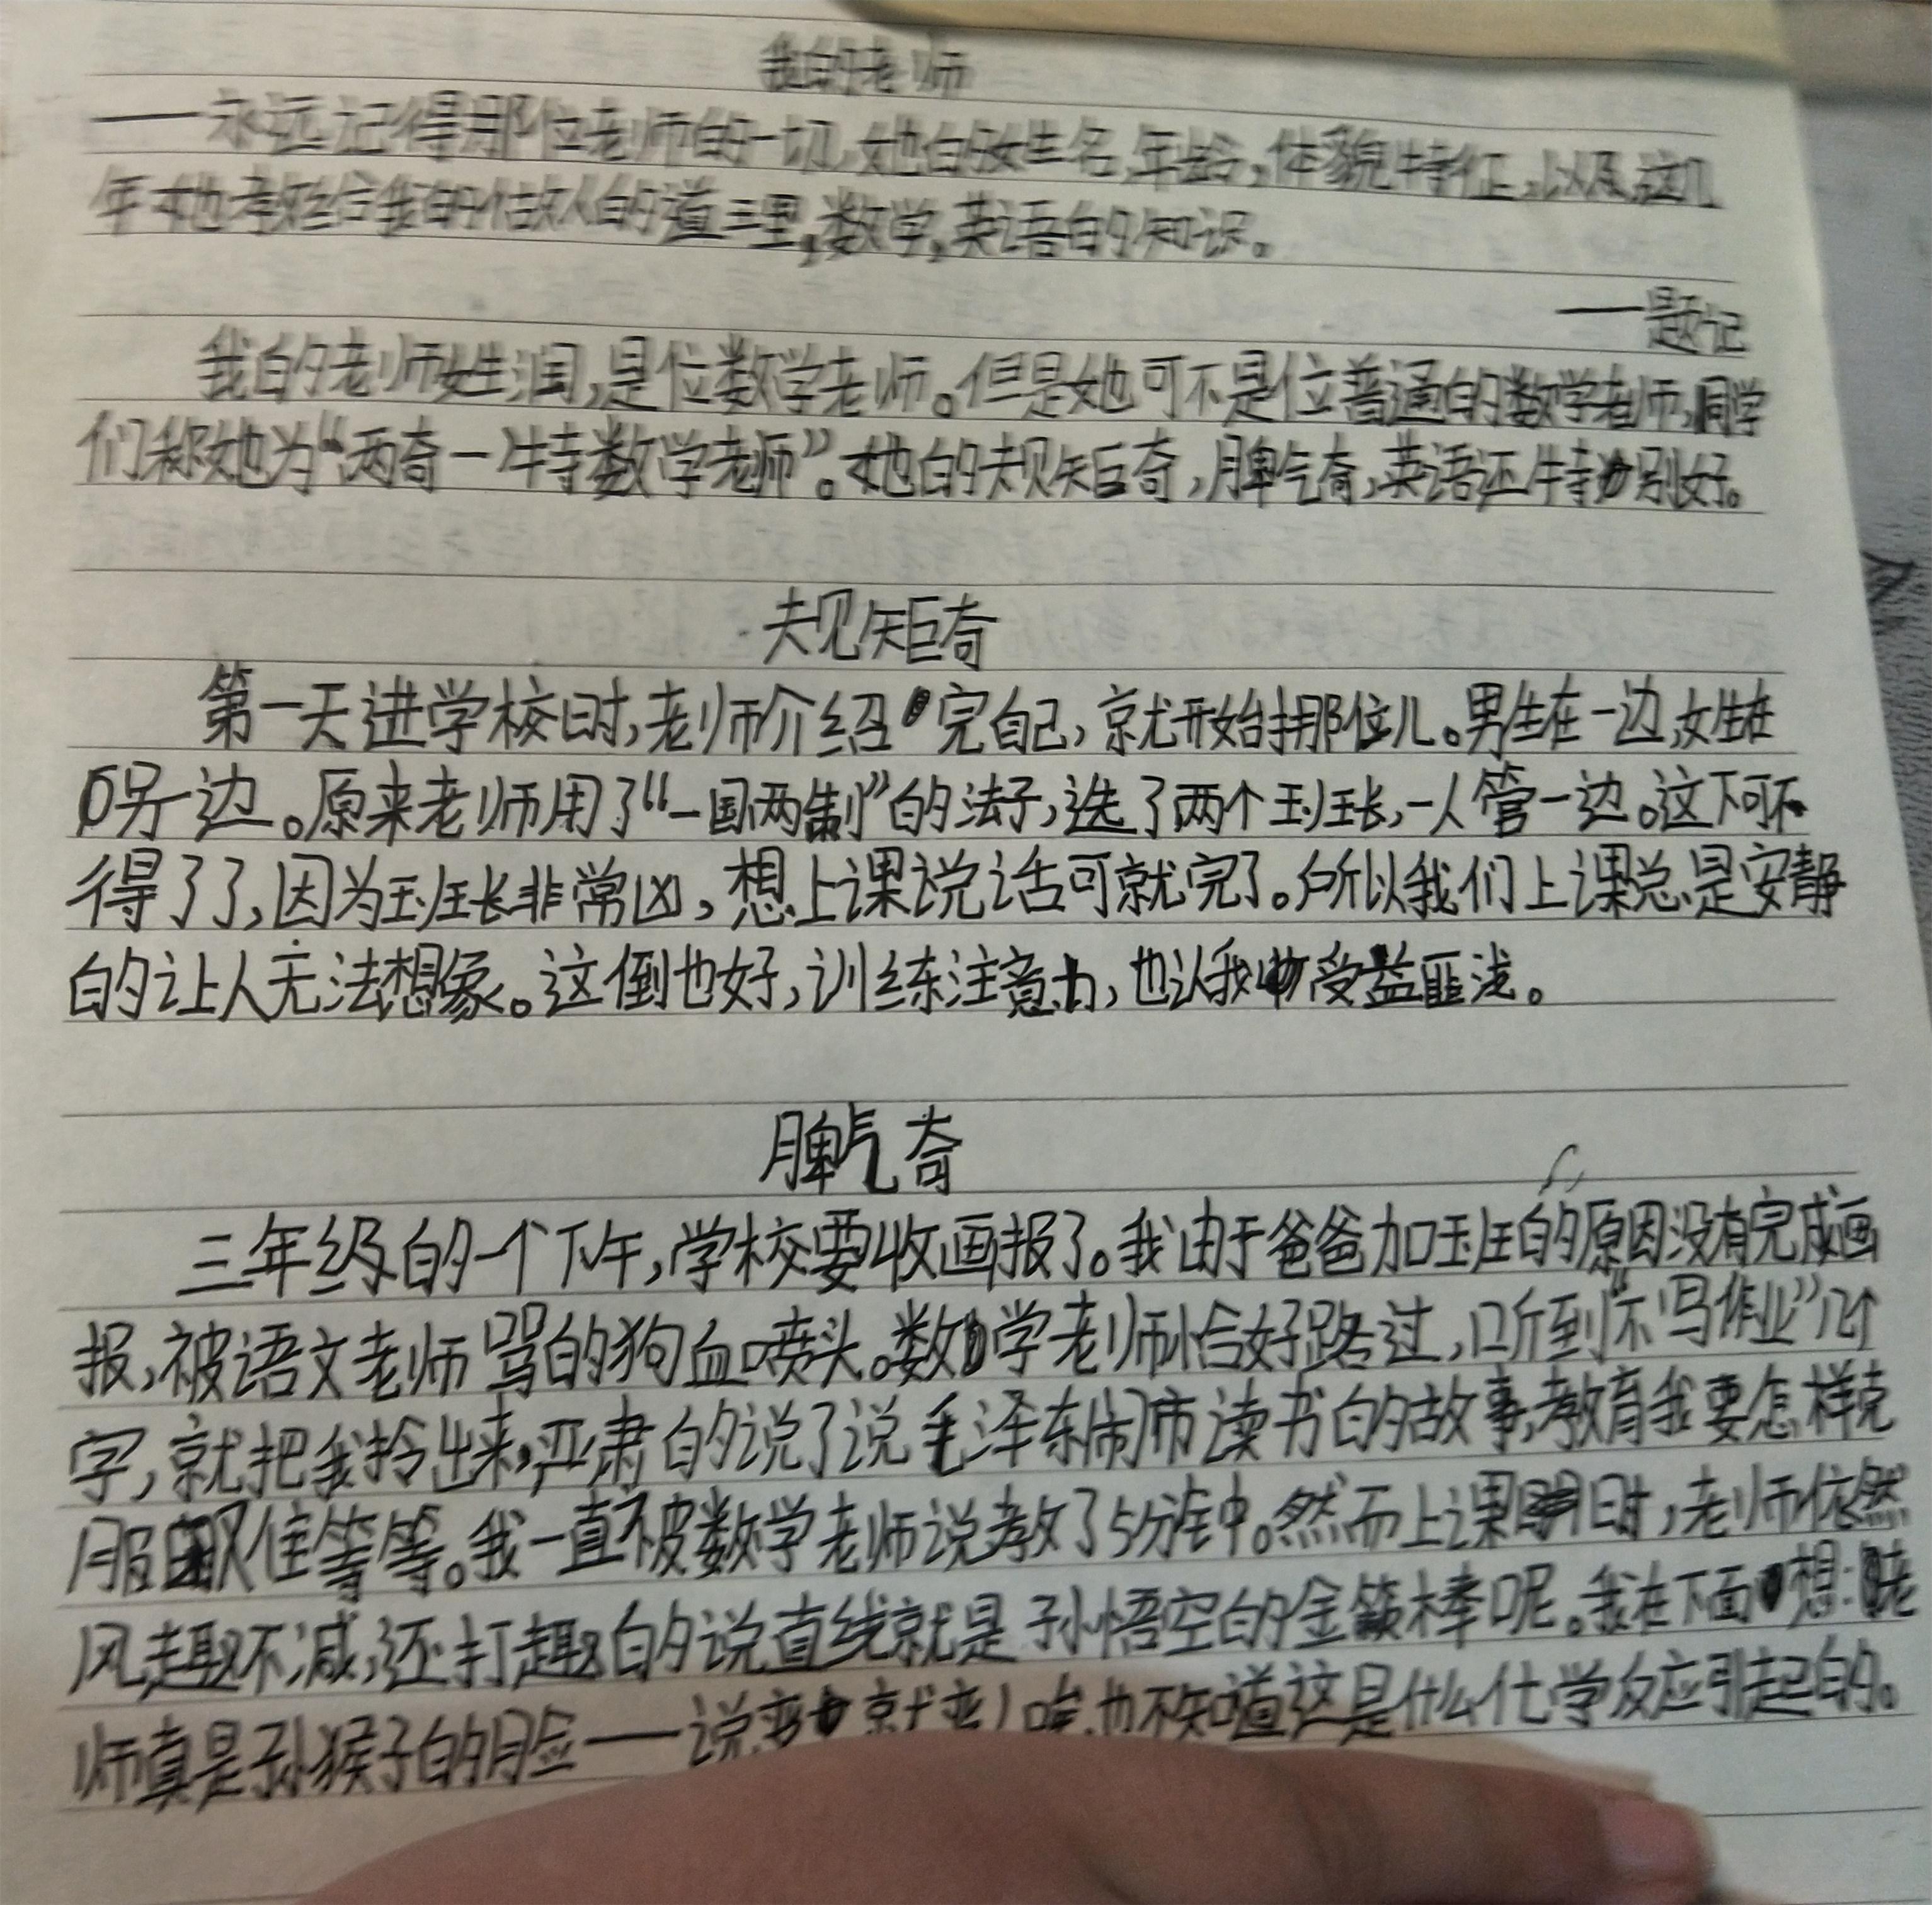 我的老师
——永远记得那位老师的一切,她的姓名,年龄,体貌特征,以及这几
年她教给我的做人的道理,数学,英语的知识。
——题记
我的老师姓润,是位数学老师。但是她可不是位普通的数学老师,同学
们称她为“两奇一特数学老师”。她的规矩奇,脾气奇,英语还特别好。
规矩奇
第一天进学校时,老师介绍完自己,就开始挪位儿。男生在一边,女生在
另一边。原来老师用了“一国两制”的法子,选了两个班长,一人管一边。这下可不
得了了,因为班长非常凶,想上课说话可就完了。所以我们上课总是安静
的让人无法想象。这倒也好,训练注意力,也让我受益匪浅。
脾气奇
三年级的一个下午,学校要收画报了。我由于爸爸加班的原因没有完成画
报,被语文老师骂的狗血喷头。数学老师恰好路过,听到“不写作业”几个
字,就把我拎出来,严肃的说了说毛泽东闹市读书的故事,教育我要怎样克
服困难等等。我一直被数学老师说教了5分钟。然而上课时,老师依然
风趣不减,还打趣的说直线就是孙悟空的金箍棒呢。我在下面想:老
师真是孙猴子的脸——说变就变!唉,也不知道这是什么化学反应引起的。